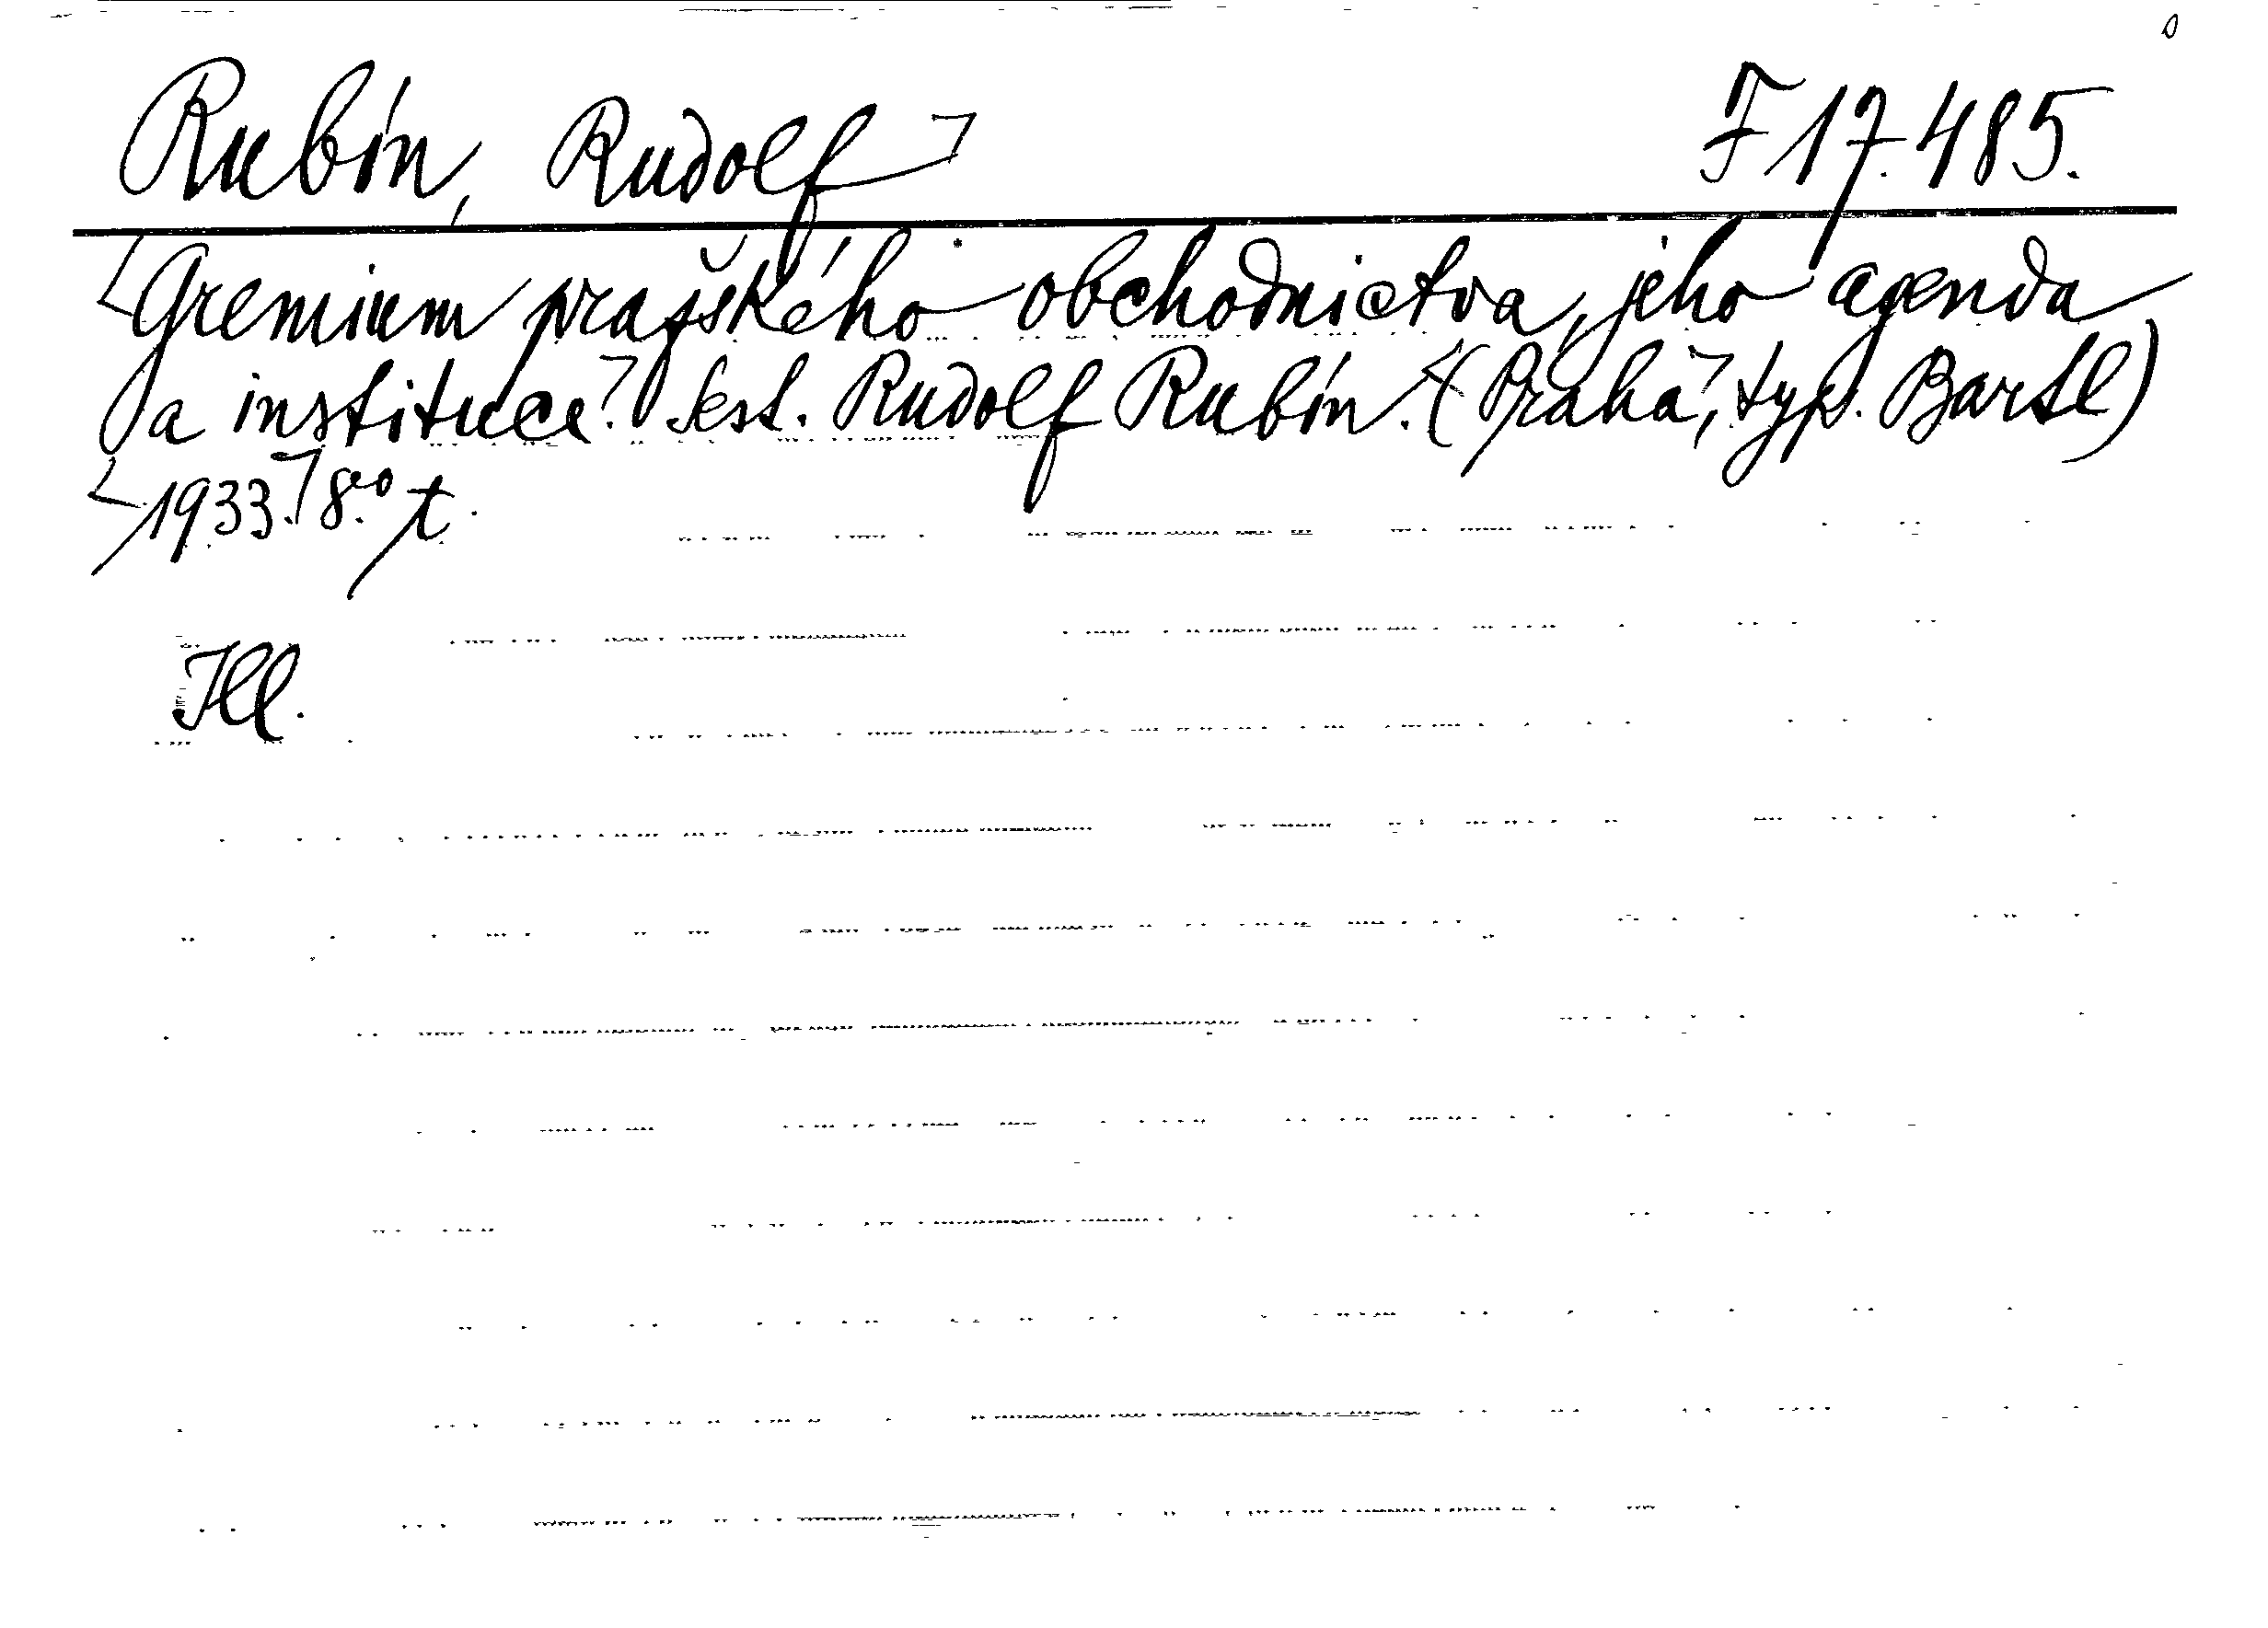 Rubín, Rudolf F 17.485.
Gremium pražského obchodnictva, jeho agenda
a instituce. Sest. Rudolf Rubín. (Praha, typ. Bartl)
1933. 8.° t.
Ill.